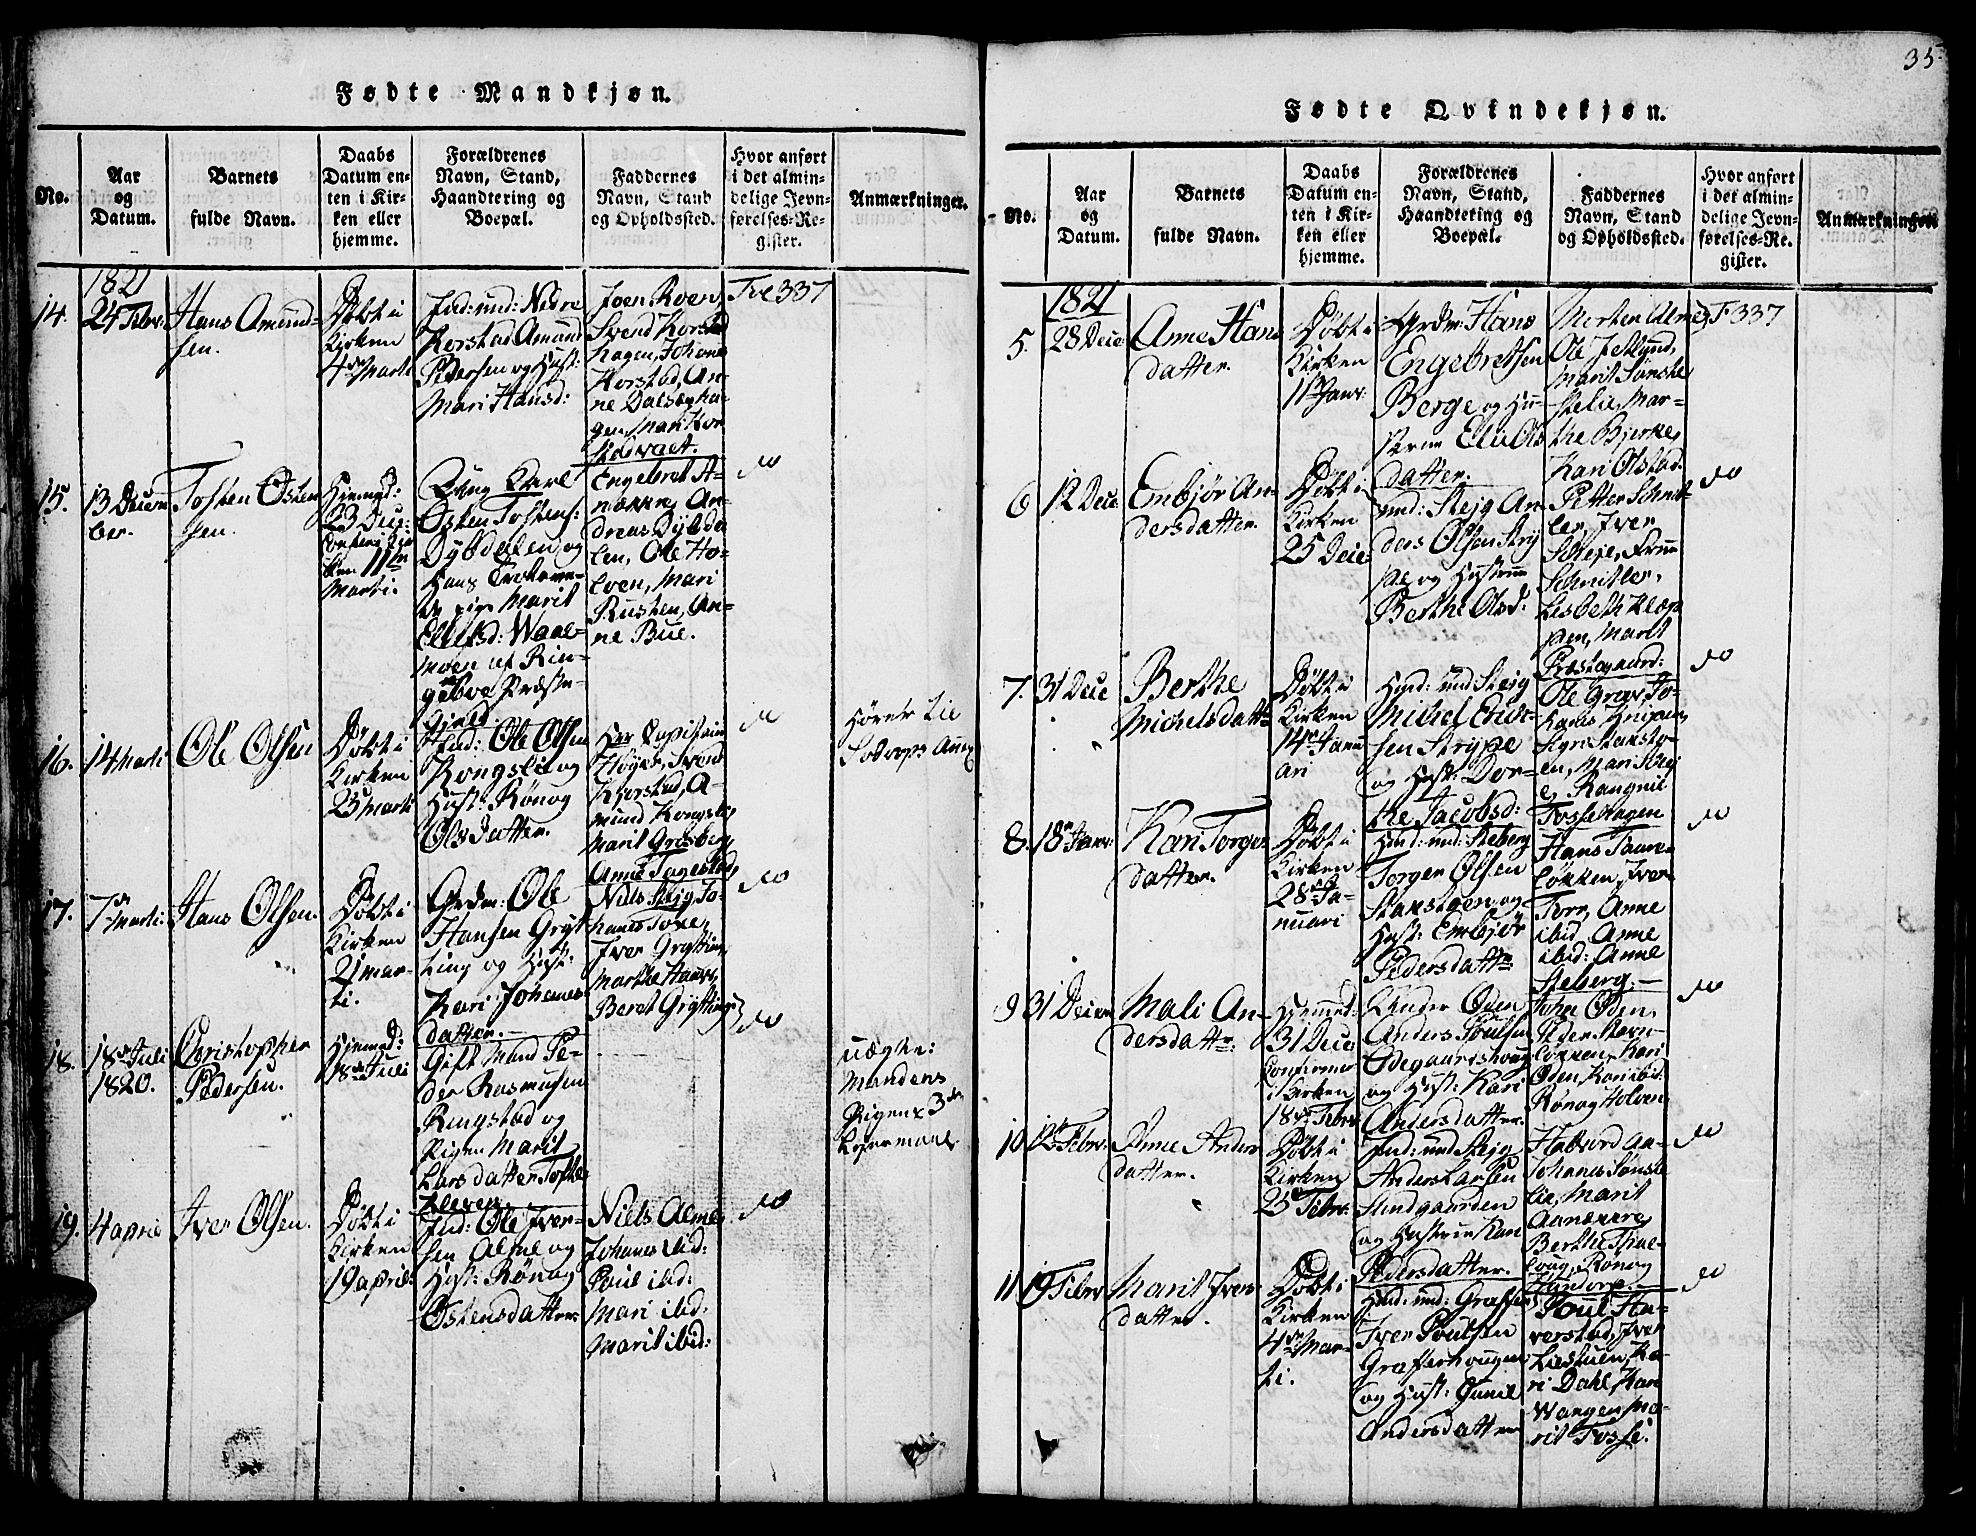 35
Fødte Mandkjøn.
No.
Aar
og
Datum.
Barnets
fulde Navn.
Daabs
Datum en-
ten i Kir-
ken eller
hjemme.
Forældrenes
Navn, Stand,
Haandtering og
Boepæl.
Faddernes
Navn, Stand
og Opholdssted.
Hvor anført
i det almin-
delige Jevn-
førelses-Re-
gister.
Anmærkninger.
1821
14.
24 Febr:
Hans Amund-
sen.
Døbt i
Kirken
4de Marti
Ind: und: Nedre
Korstad Amund
Pedersen og Hust:
Mari Hansd:
Joen Roen,
Svend Korstad
hagen, Johanes
Korstad, An-
ne Dalseg ha-
gen, Mari Kor
stadvaet.
Fol 337
15.
13 Decem
ber.
Tosten Østen
sen.
Hjemed:
23 Dec:
Confirm: i Kir
ken 11te
Marti.
Ung Karl
Østen Tostens:
Dybdalen og
Hans Trolovee-
de pige Marit
Ellefsd: Waal-
moen af Rin-
geboe Præste-
Gjeld
Engebret A-
nækre, An-
dreas Dybda
len, Ole Ho-
lven, Mari
Rusten, An-
ne Bue.
do
16.
14 Marti
Ole Olsen
Døbt i
Kirken
25 Marti
Ind: Ole Olsen
Kongslie og
Hust: Rønog
Ols Datter.
Her Capitain
Høyer, Svend
Kjorstad, A-
mund Kongsli
Marit Grøsberg
Anne Tagestad,
do
Hører Lie
Sodorps Anex
17.
7de Marti:
Hans Olsen.
Døbt i
Kirken
21 Mar-
ti.
Grdm: Ole
Hansen Gryt
ting og Hust:
Kari Johanes
datter.
Niels Steig, Jo-
hanes Toxe,
Iver Grytting,
Marthe Haave,
Beret Grytting
do
18.
18de Juli
1820.
Christopher
Pedersen.
Hjemed:
18de Juli
Gift Mand Pe-
der Rasmusen
Ringstad og
Pigen Marit
Larsdatter Tofte
Kleven
do
uægte:
Mandens
Pigens 3de
Leiermaal
19.
4 april
Iver Olsen.
Døbt i
Kirken
19 april:
Ind: Ole Iver-
sen Alme og
Hust: Rønog
Østensdatter
Niels Alme,
Johanes ibid:
Poul ibid:
Mari ibid:
Marit ibid:
do
Fødte Qvindekjøn.
No.
Aar
og
Datum.
Barnets
fulde Navn.
Daabs
Datum en-
ten i Kir-
ken eller
hjemme.
Forældrenes
Navn, Stand,
Haandtering og
Boepæl.
Faddernes
Navn, Stand
og Opholdssted.
Hvor anført
i det almin-
delige Jevn-
førelses-Re-
gister.
Anmærkninger
1821
5.
28 Dece
Anne Hans
datter.
Døbt i
Kirken
1ste Janr.
Grdm: Hans
Engebretsen
Berge og Hu-
strue Eli Ols
datter.
Morten Alme,
Ole Jetlund,
Marit Sønste
stelie, Mar-
the Bjerke,
Kari Olstad.
F 337
6
12 Dece
Embjør An-
dersdatter.
Døbt i
Kirken
25 Dece
und: Steig An
ders Olsen Stry
pe og Hustrue
Berthe Olsd:
Petter Schnit
ler, Iver
Søteje, Frue
Schnitler,
Lisbeth Klop
pen, Marit
Præstegaard:
do
7.
31 Dece
Berthe
Michelsdatt
Døbt i
Kirken
14de Janu
ari
Hmd: und Steig
Mikel Erik-
sen Strype
og Hust: Dor-
the Jacobsd:
Ole Grav, Jo-
hanes Knipen,
Siyri Stensto-
en, Mari Steij
e, Rangnil
Fossehagen
do
8.
18de Janr:
Kari Torger
datter.
Døbt i
Kirken
28de Ja-
nuari
Hmd: und: Steberg
Torger Olsen
Stenstøen og
Hust: Embjør
Pedersdatter
Hans Taare-
løkken, Iver
Forr, Anne
ibid, Anne
ibid: Anne
Steberg.
do
9
31 Decem
Mali An-
dersdatter:
Hjemmed:
31 Dec
Confirmer
i Kirken
18de Febr
Under Øden
Anders Poulsen
Ødegaardshoug
og Hust: Kari
Andersdatter.
John Øden,
Peder Stavn-
løkken, Kari
Øden, Kari ibid:
Rønog Holven
do
10
12te Febr:
Anne Anders
datter.
Døbt i
Kirken
25 Febr:
Ind: und Steig
Anders Larsen
Sundgaarden
og Hustrue Kari
Pedersdatter.
Halvord An-
Johanes Sønste
lie, Marit
Aanækre,
Berthe Spæl-
loug, Rønog
Hundorp.
do
11
19 Febr
Marit Iver
datter.
Døbt i
Kirken
4de Mar-
ti.
Hmd: und: Graffer
Iver Poulsen
Grafferhougen
og Hust: Gunil
Andersdatter
Poul Ha-
verstad, Iver
Liestuen, Ka-
ri Dahl, Kari
Wangen, Ma-
rit Fosse.
do